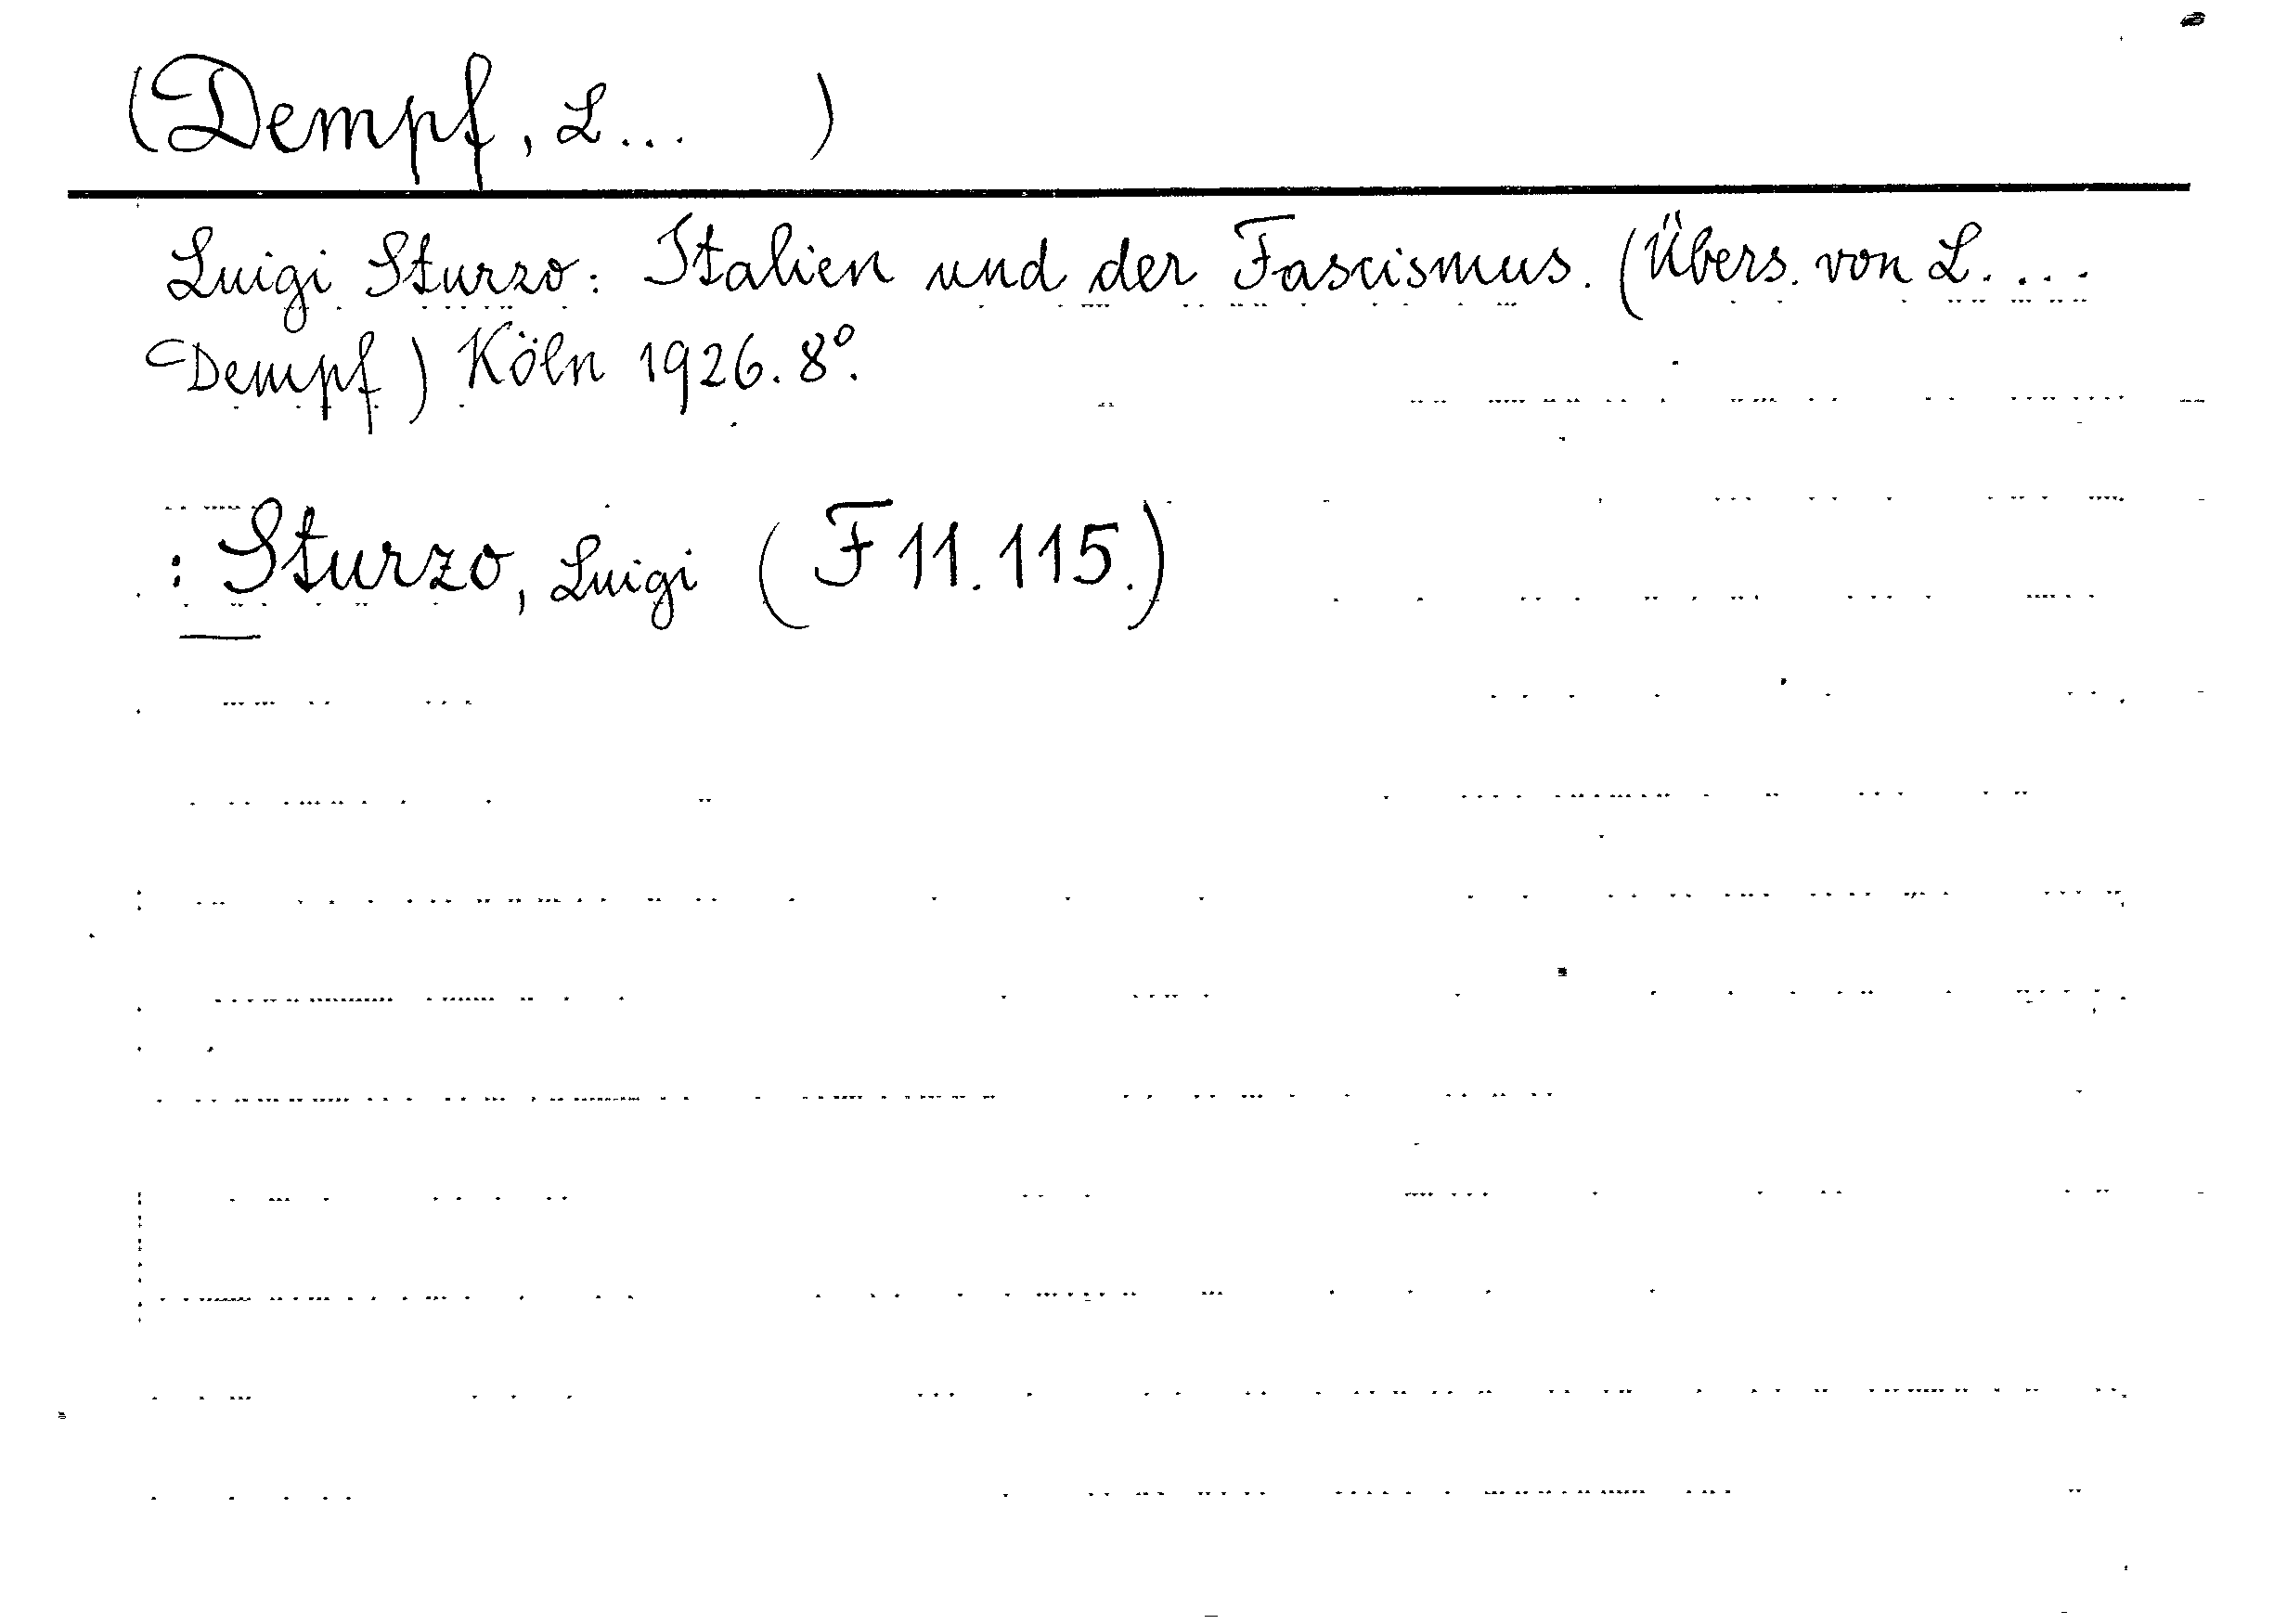 (Dempf, L... )
Luigi Sturzo: Italien und der Fascismus. (Übers. von L....
Dempf) Köln 1926. 8°.
: Sturzo, Luigi (F 11. 115.)